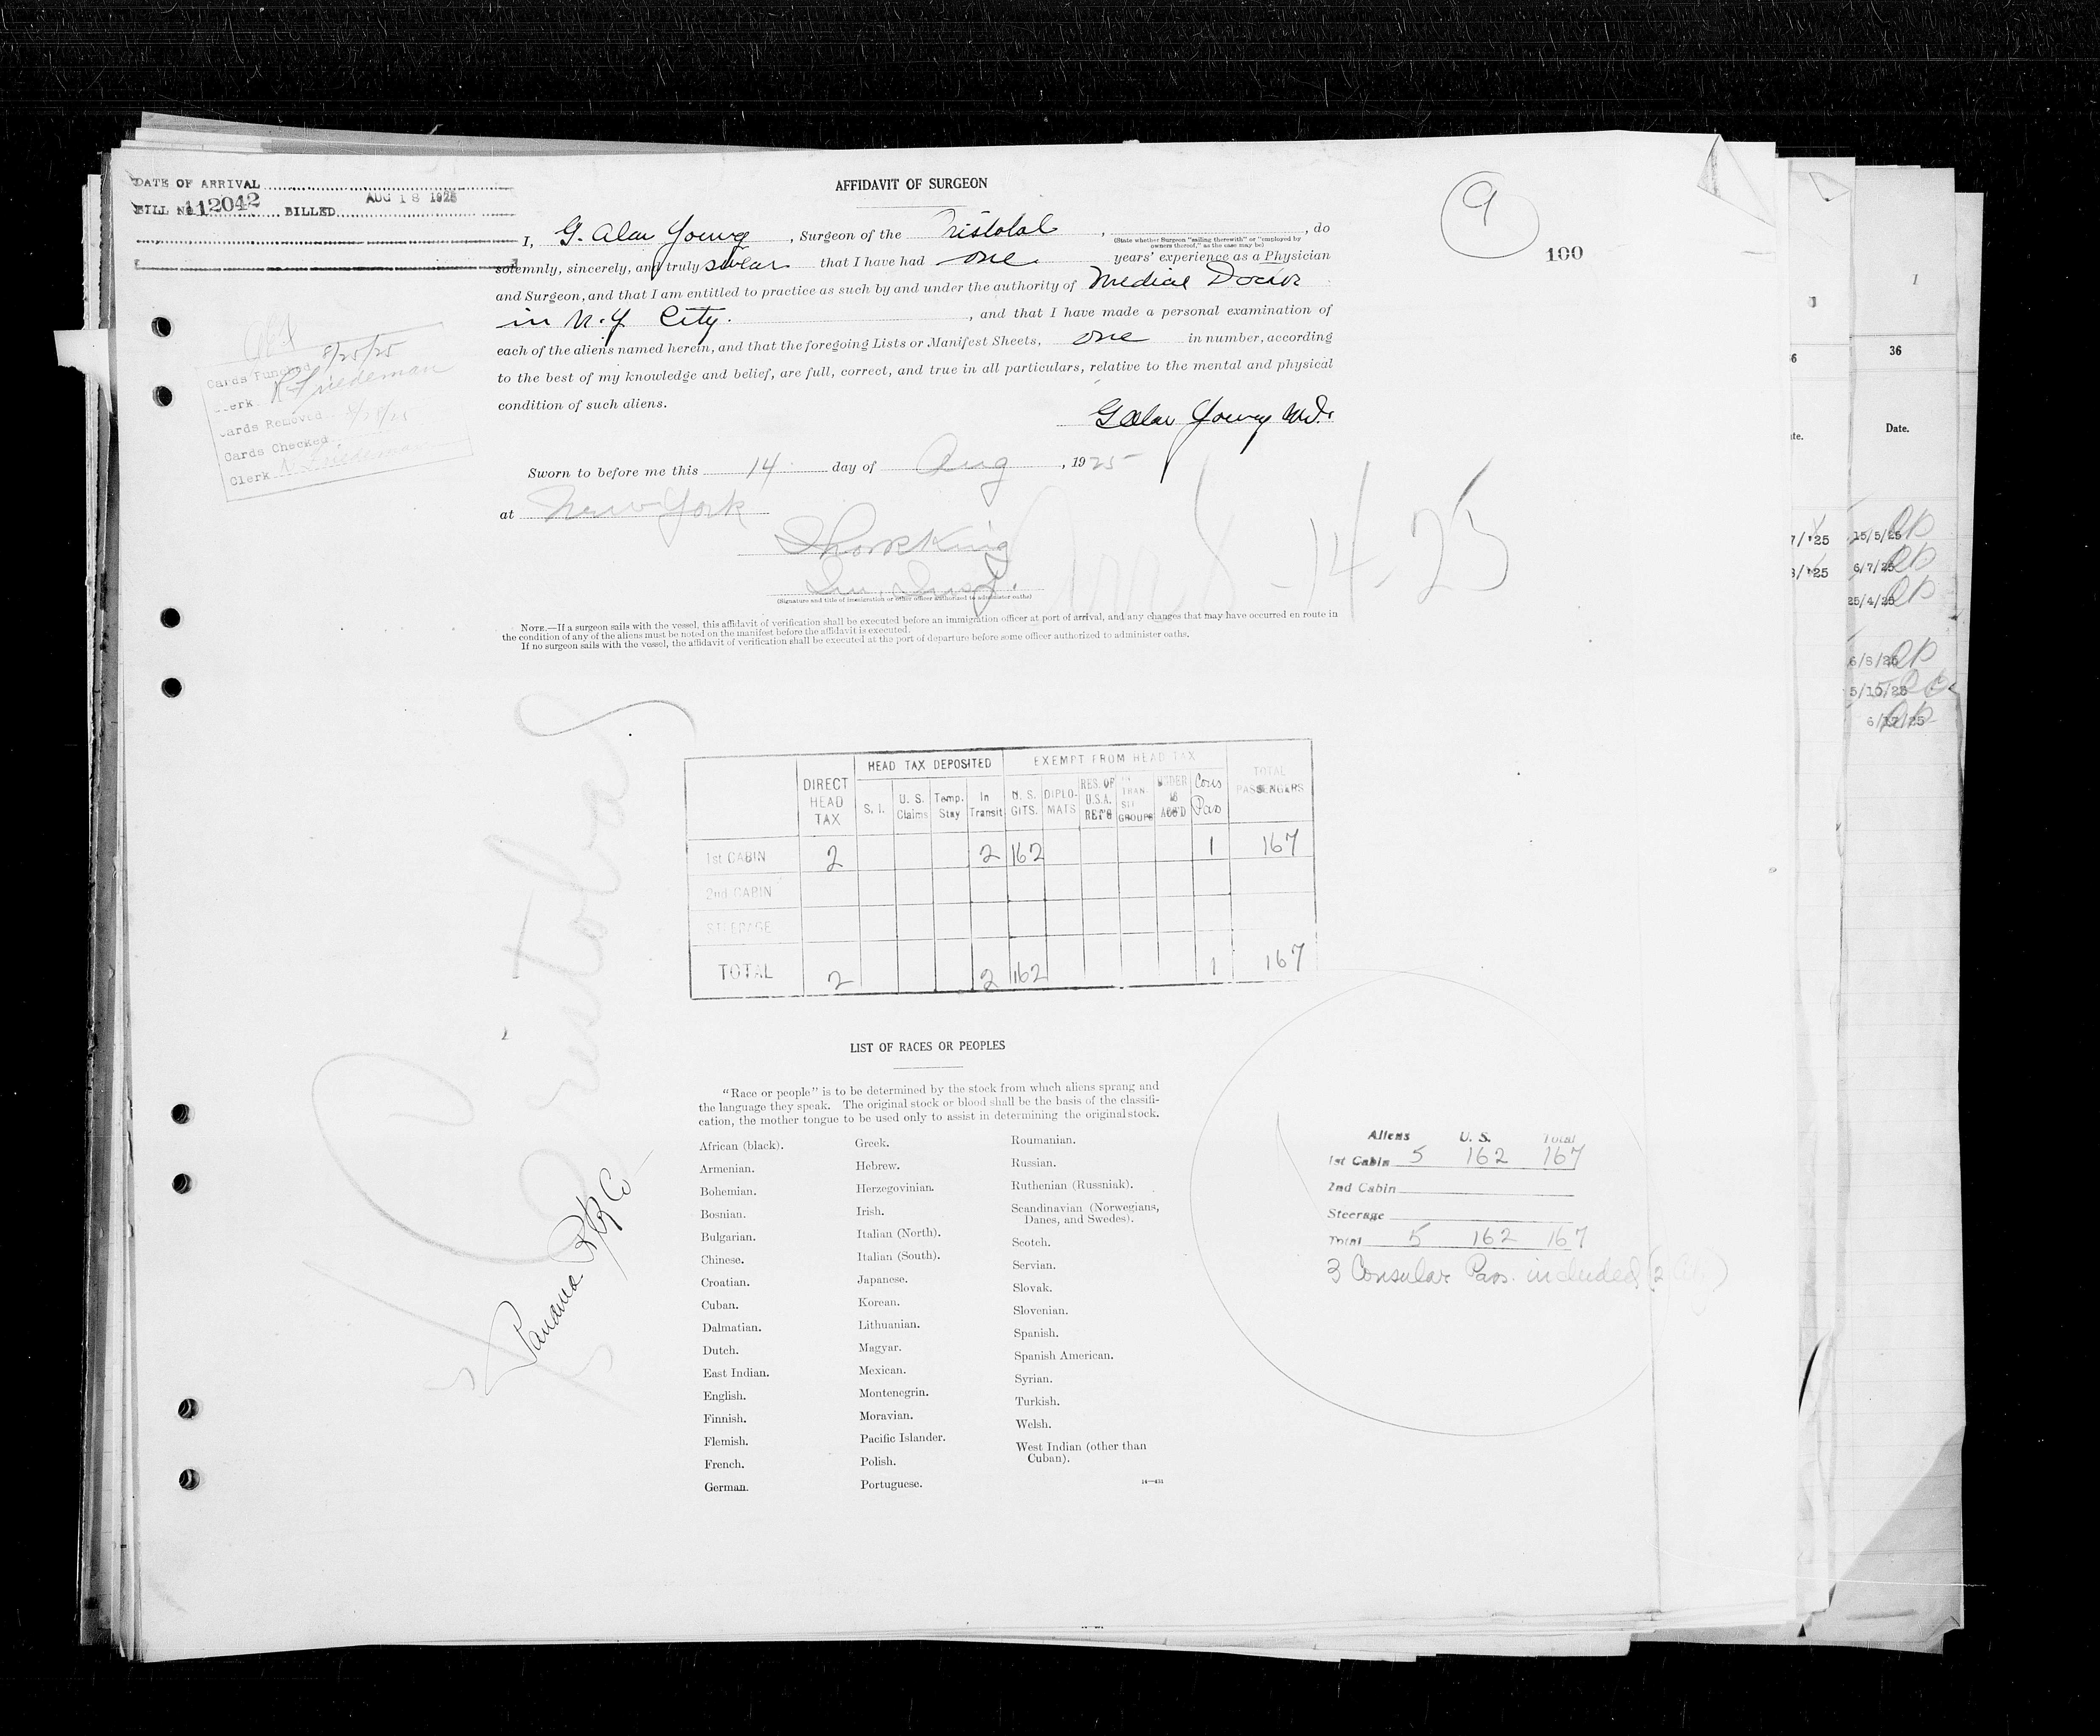 DATE OF ARRIVAL
BILL No. 112042 BILLED AUG 18 1925
AFFIDAVIT OF SURGEON
9
100
I, G. Alan Young, Surgeon of the Cristobal, , do
(State whether Surgeon "sailing therewith" or "employed by
owners thereof," as the case may be)
solemnly, sincerely, and truly swear that I have had one years' experience as a Physician
and Surgeon, and that I am entitled to practice as such by and under the authority of Medical Doctor
in N.Y. City. , and that I have made a personal examination of
each of the aliens named herein, and that the foregoing Lists or Manifest Sheets, one in number, according
to the best of my knowledge and belief, are full, correct, and true in all particulars, relative to the mental and physical
condition of such aliens.
G Alan Young M.D.
Cards Punched 8/25/25
Clerk N. Friedeman
Cards Removed
Cards Checked
Clerk N. Friedeman
Sworn to before me this 14 day of Aug, 1925
at New York
(Signature and title of immigration or other officer authorized to administer oaths)
8-14-25
NOTE.—If a surgeon sails with the vessel, this affidavit of verification shall be executed before an immigration officer at port of arrival, and any changes that may have occurred en route in
the condition of any of the aliens must be noted on the manifest before the affidavit is executed.
If no surgeon sails with the vessel, the affidavit of verification shall be executed at the port of departure before some officer authorized to administer oaths.
Cristobal
Panama RR Co
HEAD TAX DEPOSITED EXEMPT FROM HEAD TAX
DIRECT HEAD TAX S. I. U. S. Claims Temp. Stay In Transit U. S. CITS. DIPLOMATS RES. OF U.S.A. RET'G IN TRANSIT GROUPS UNDER 16 ACC'D Cons Pass TOTAL PASSENGERS
1st CABIN 2 2 162 1 167
2nd CABIN
STEERAGE
TOTAL 2 2 162 1 167
LIST OF RACES OR PEOPLES
"Race or people" is to be determined by the stock from which aliens sprang and
the language they speak. The original stock or blood shall be the basis of the classifi-
cation, the mother tongue to be used only to assist in determining the original stock.
African (black).
Armenian.
Bohemian.
Bosnian.
Bulgarian.
Chinese.
Croatian.
Cuban.
Dalmatian.
Dutch.
East Indian.
English.
Finnish.
Flemish.
French.
German.
Greek.
Hebrew.
Herzegovinian.
Irish.
Italian (North).
Italian (South).
Japanese.
Korean.
Lithuanian.
Magyar.
Mexican.
Montenegrin.
Moravian.
Pacific Islander.
Polish.
Portuguese.
Roumanian.
Russian.
Ruthenian (Russniak).
Scandinavian (Norwegians,
Danes, and Swedes).
Scotch.
Servian.
Slovak.
Slovenian.
Spanish.
Spanish American.
Syrian.
Turkish.
Welsh.
West Indian (other than
Cuban).
Aliens U. S. Total
1st Cabin 5 162 167
2nd Cabin
Steerage
Total 5 162 167
3 Consular Pass. included
1
36
Date.
15/5/25
6/7/25
25/4/25
6/8/25
5/15/25
6/12/25